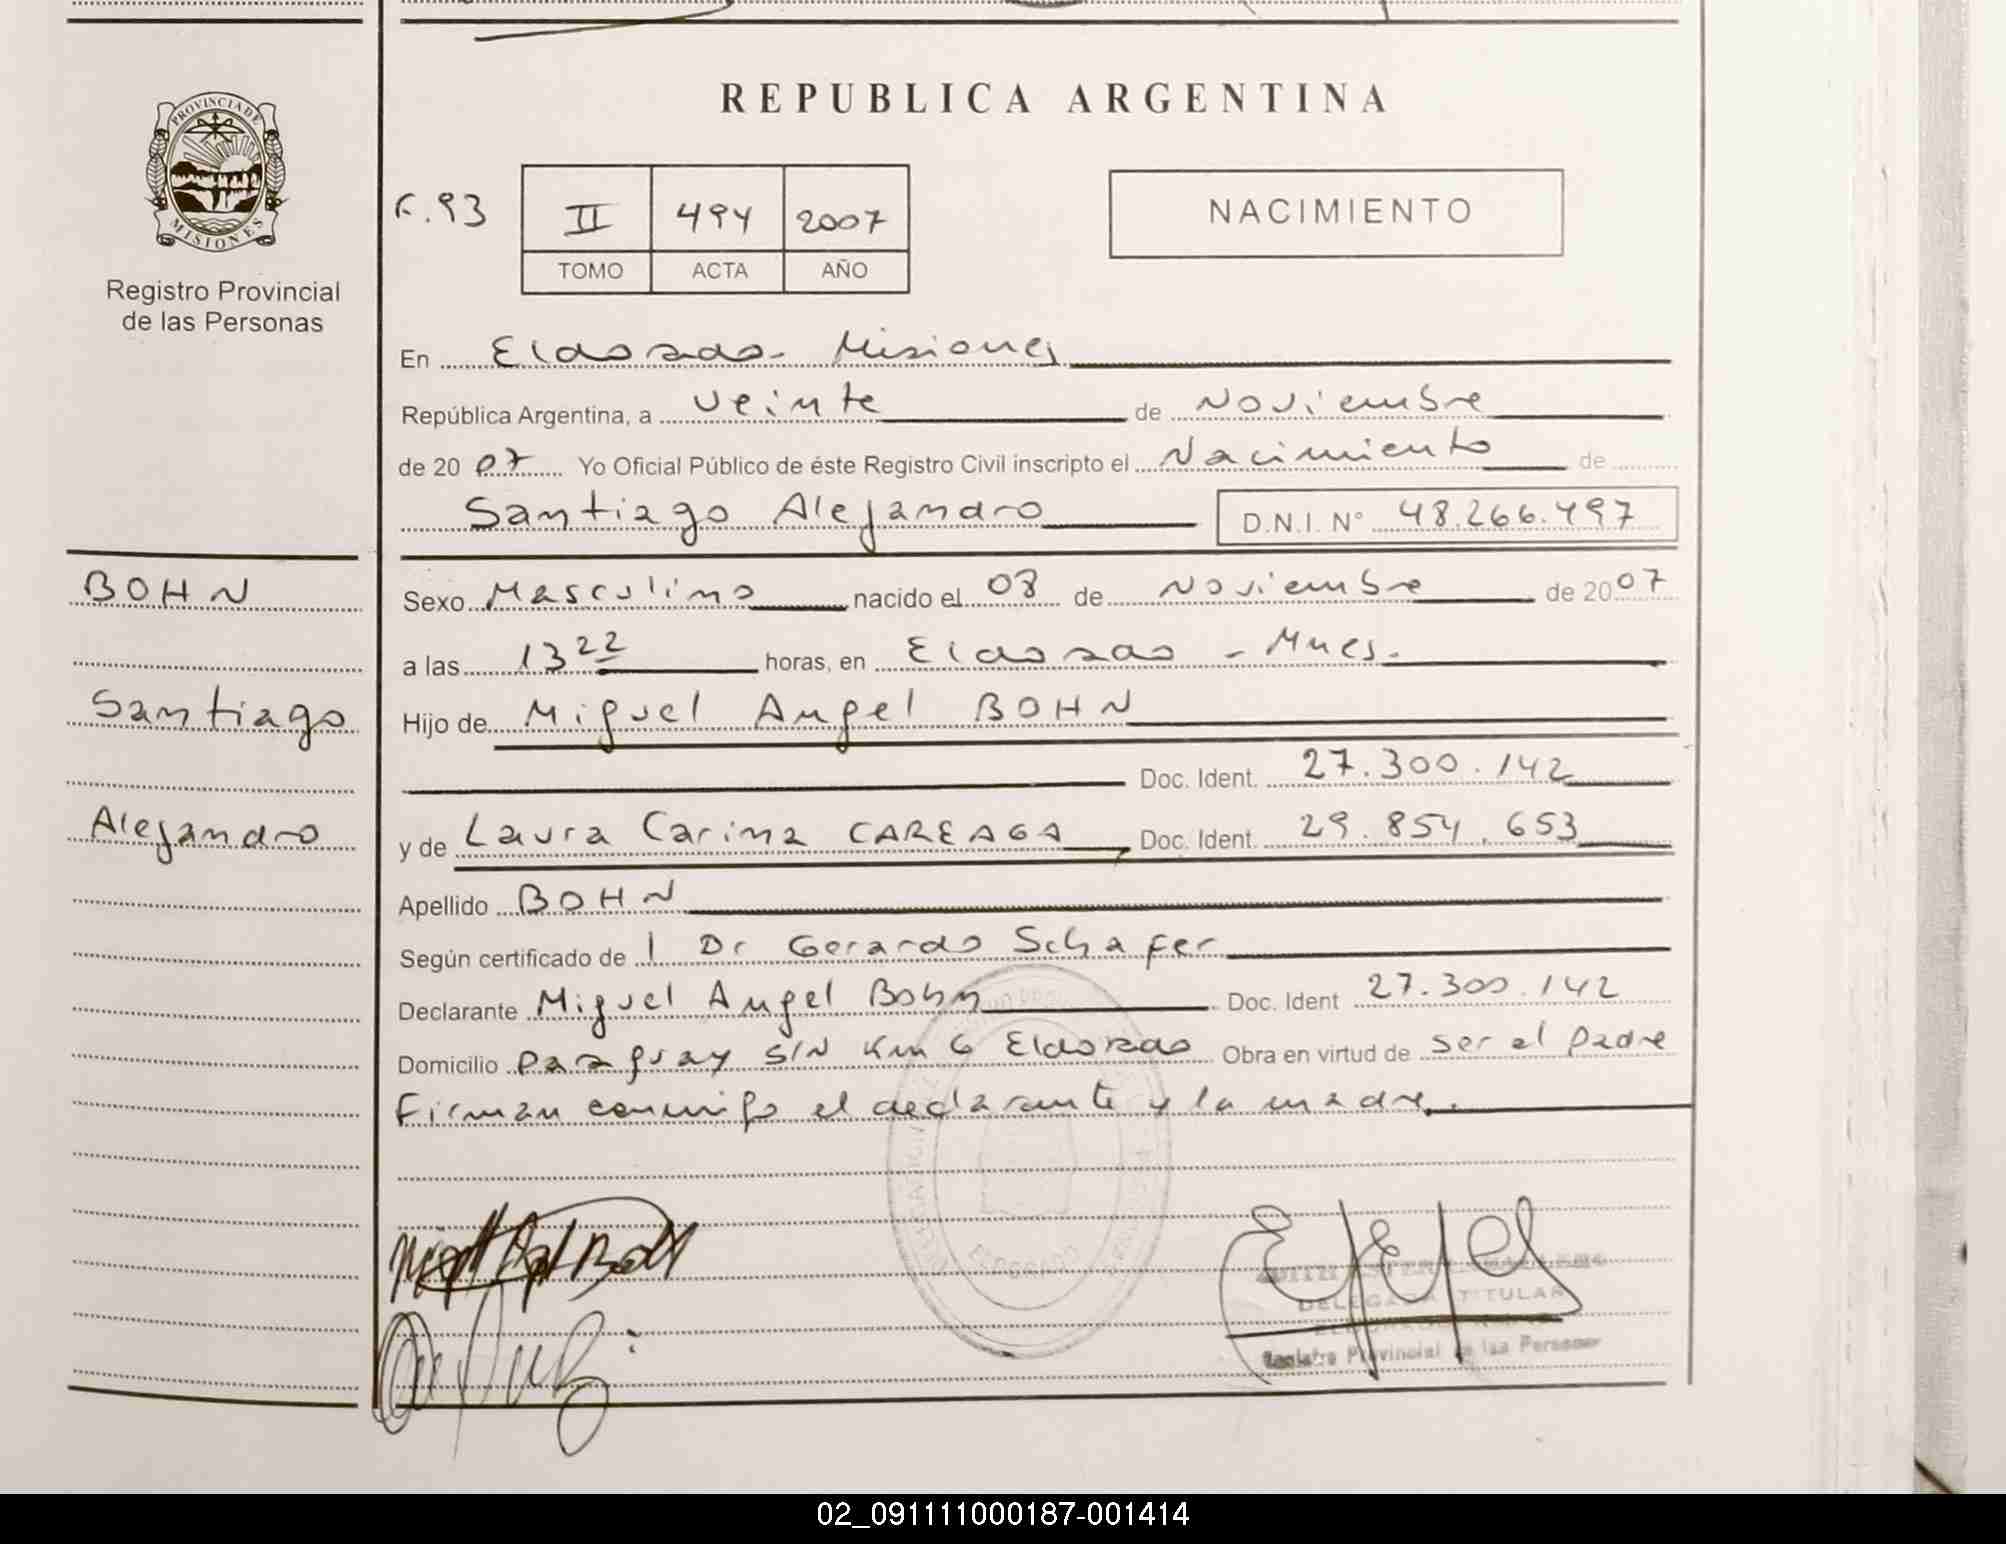 REPUBLICA ARGENTINA
PROVINCIA DE
MISIONES
Registro Provincial
de las Personas
F.93
II 494 2007
TOMO ACTA AÑO
NACIMIENTO
En Eldorado - Misiones
República Argentina, a veinte de Noviembre
de 20 07 Yo Oficial Público de éste Registro Civil inscripto el Nacimiento de
Santiago Alejandro D.N.I. Nº 48.266.497
BOHN
Santiago
Alejandro
Sexo Masculino nacido el 08 de Noviembre de 2007
a las 13 22 horas, en Eldorado - Mnes.
Hijo de Miguel Angel BOHN
Doc. Ident. 27.300.142
y de Laura Carina CAREAGA Doc. Ident. 29.854.653
Apellido BOHN
Según certificado de l Dr Gerardo Schafer
Declarante Miguel Angel Bohn Doc. Ident 27.300.142
Domicilio Paraguay S/N Km 6 Eldorado Obra en virtud de ser el padre
Firman conmigo el declarante y la madre.
DELEGADA TITULAR
ELDORADO
Registro Provincial de las Personas
02_091111000187-001414